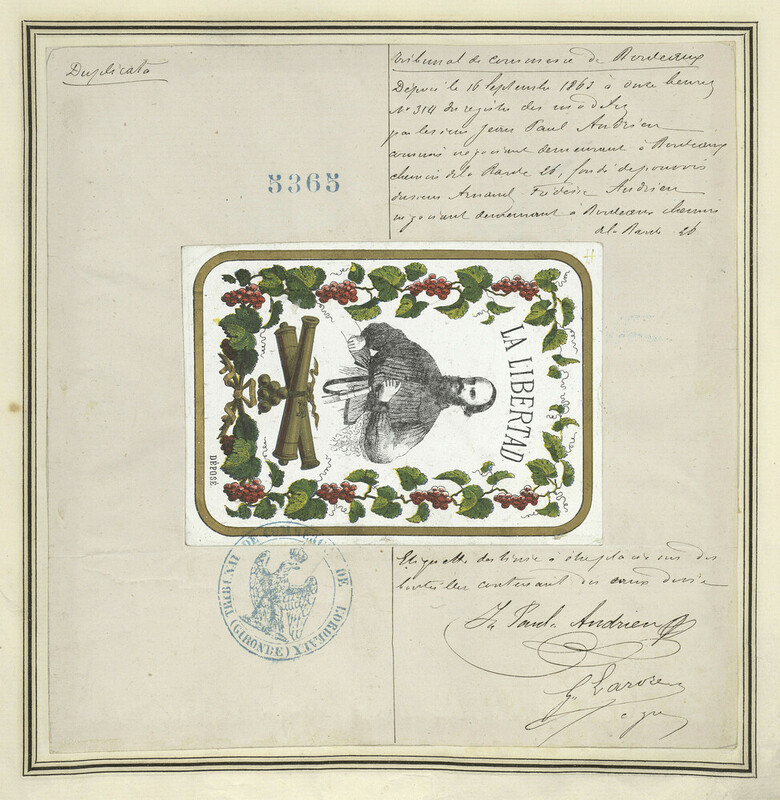 Duplicata
5365
Tribunal de commerce de Bordeaux
Déposé le 16 Septembre 1863 à onze heures
No 314 du registre des modeles
par le sieur Jean Paul Andrieu
commis négociant demeurant à Bordeaux
chemin de la Rande 26, fondé de pouvoirs
du sieur Armand Frédéric Andrieu
négociant demeurant à Bordeaux chemin
de la Rande 26
LA LIBERTAD
DÉPOSÉ
TRIBUNAL DE COMMERCE DE BORDEAUX (GIRONDE)
Etiquette destinée à être placée sur des
bouteilles contenant des
Jn Paul Andrieu